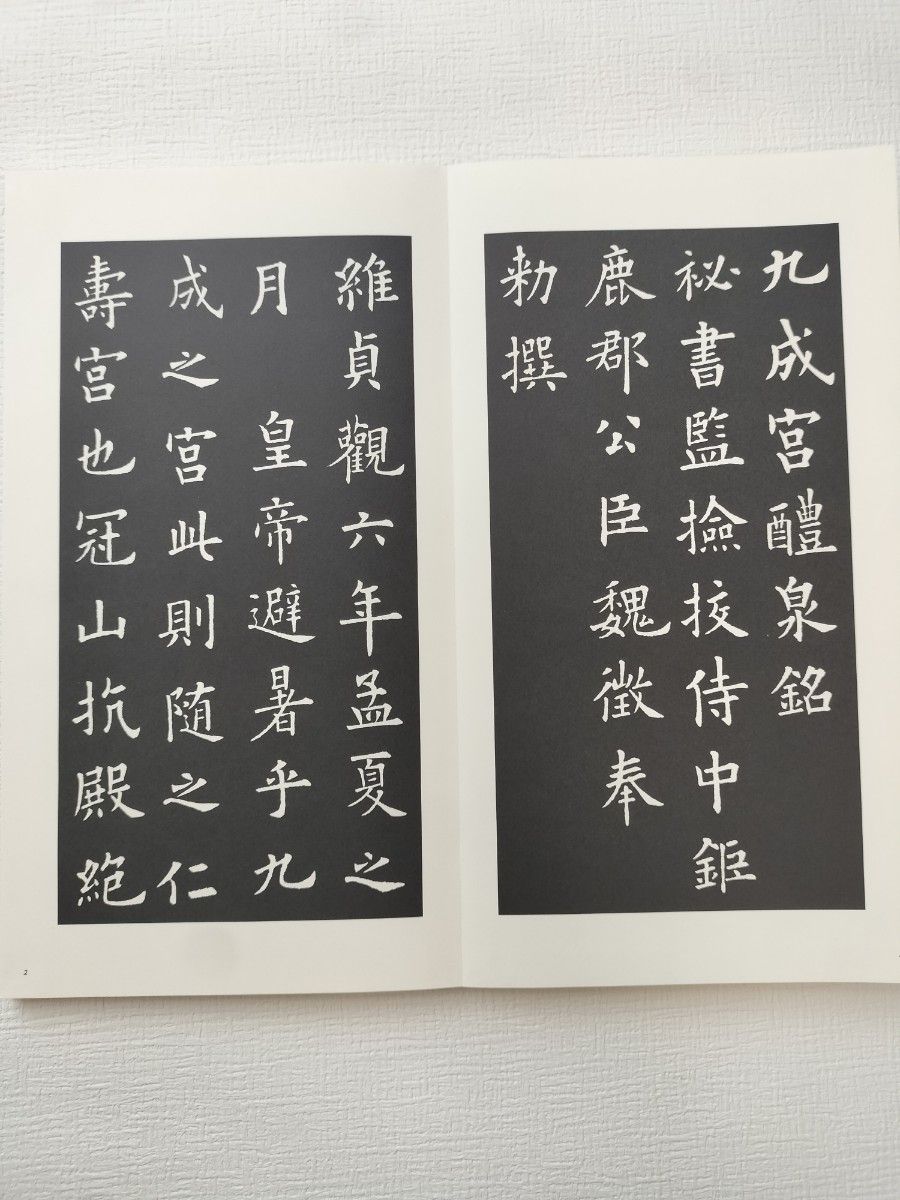 九成宮醴泉銘
祕書監撿挍侍中鉅
鹿郡公臣魏徵奉
勑撰
維貞觀六年孟夏之
月　皇帝避暑乎九
成之宮此則隨之仁
壽宮也冠山抗殿絕
2